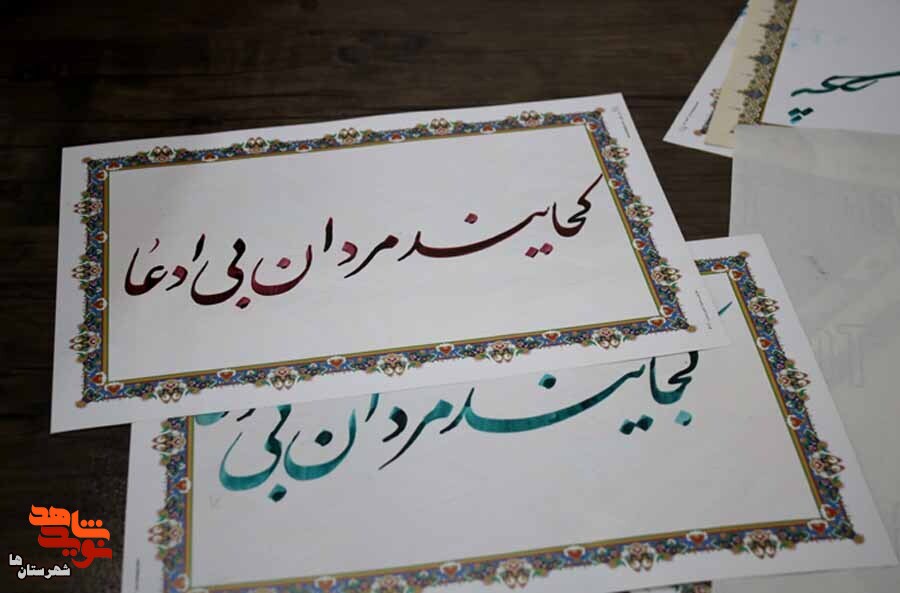 کجایند مردان بی ادعا
کجایند مردان بی
نوید شاهد
شهرستان ها